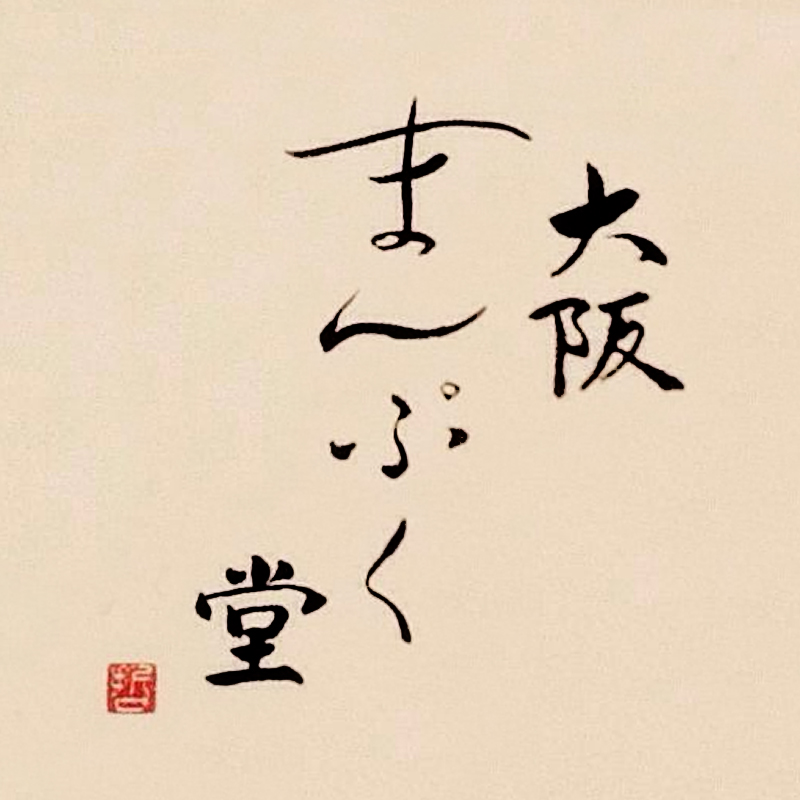 大阪
まんぷく
堂